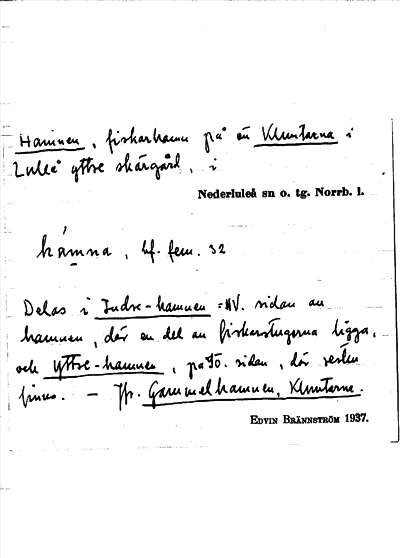 Hamnen, fiskarhamn på ön Kluntarna i
Luleå yttre skärgård, i
Nederluleå sn o. tg. Norrb. l.
hamna, bf. fem. 32
Delas i Indre-hamnen = NV. sidan av
hamnen, där en del av fiskarstugorna ligga,
och yttre-hamnen, på SO. sidan, där resten
finns. — Jfr. Gammelhamnen, Kluntarna.
EDVIN BRÄNNSTRÖM 1937.